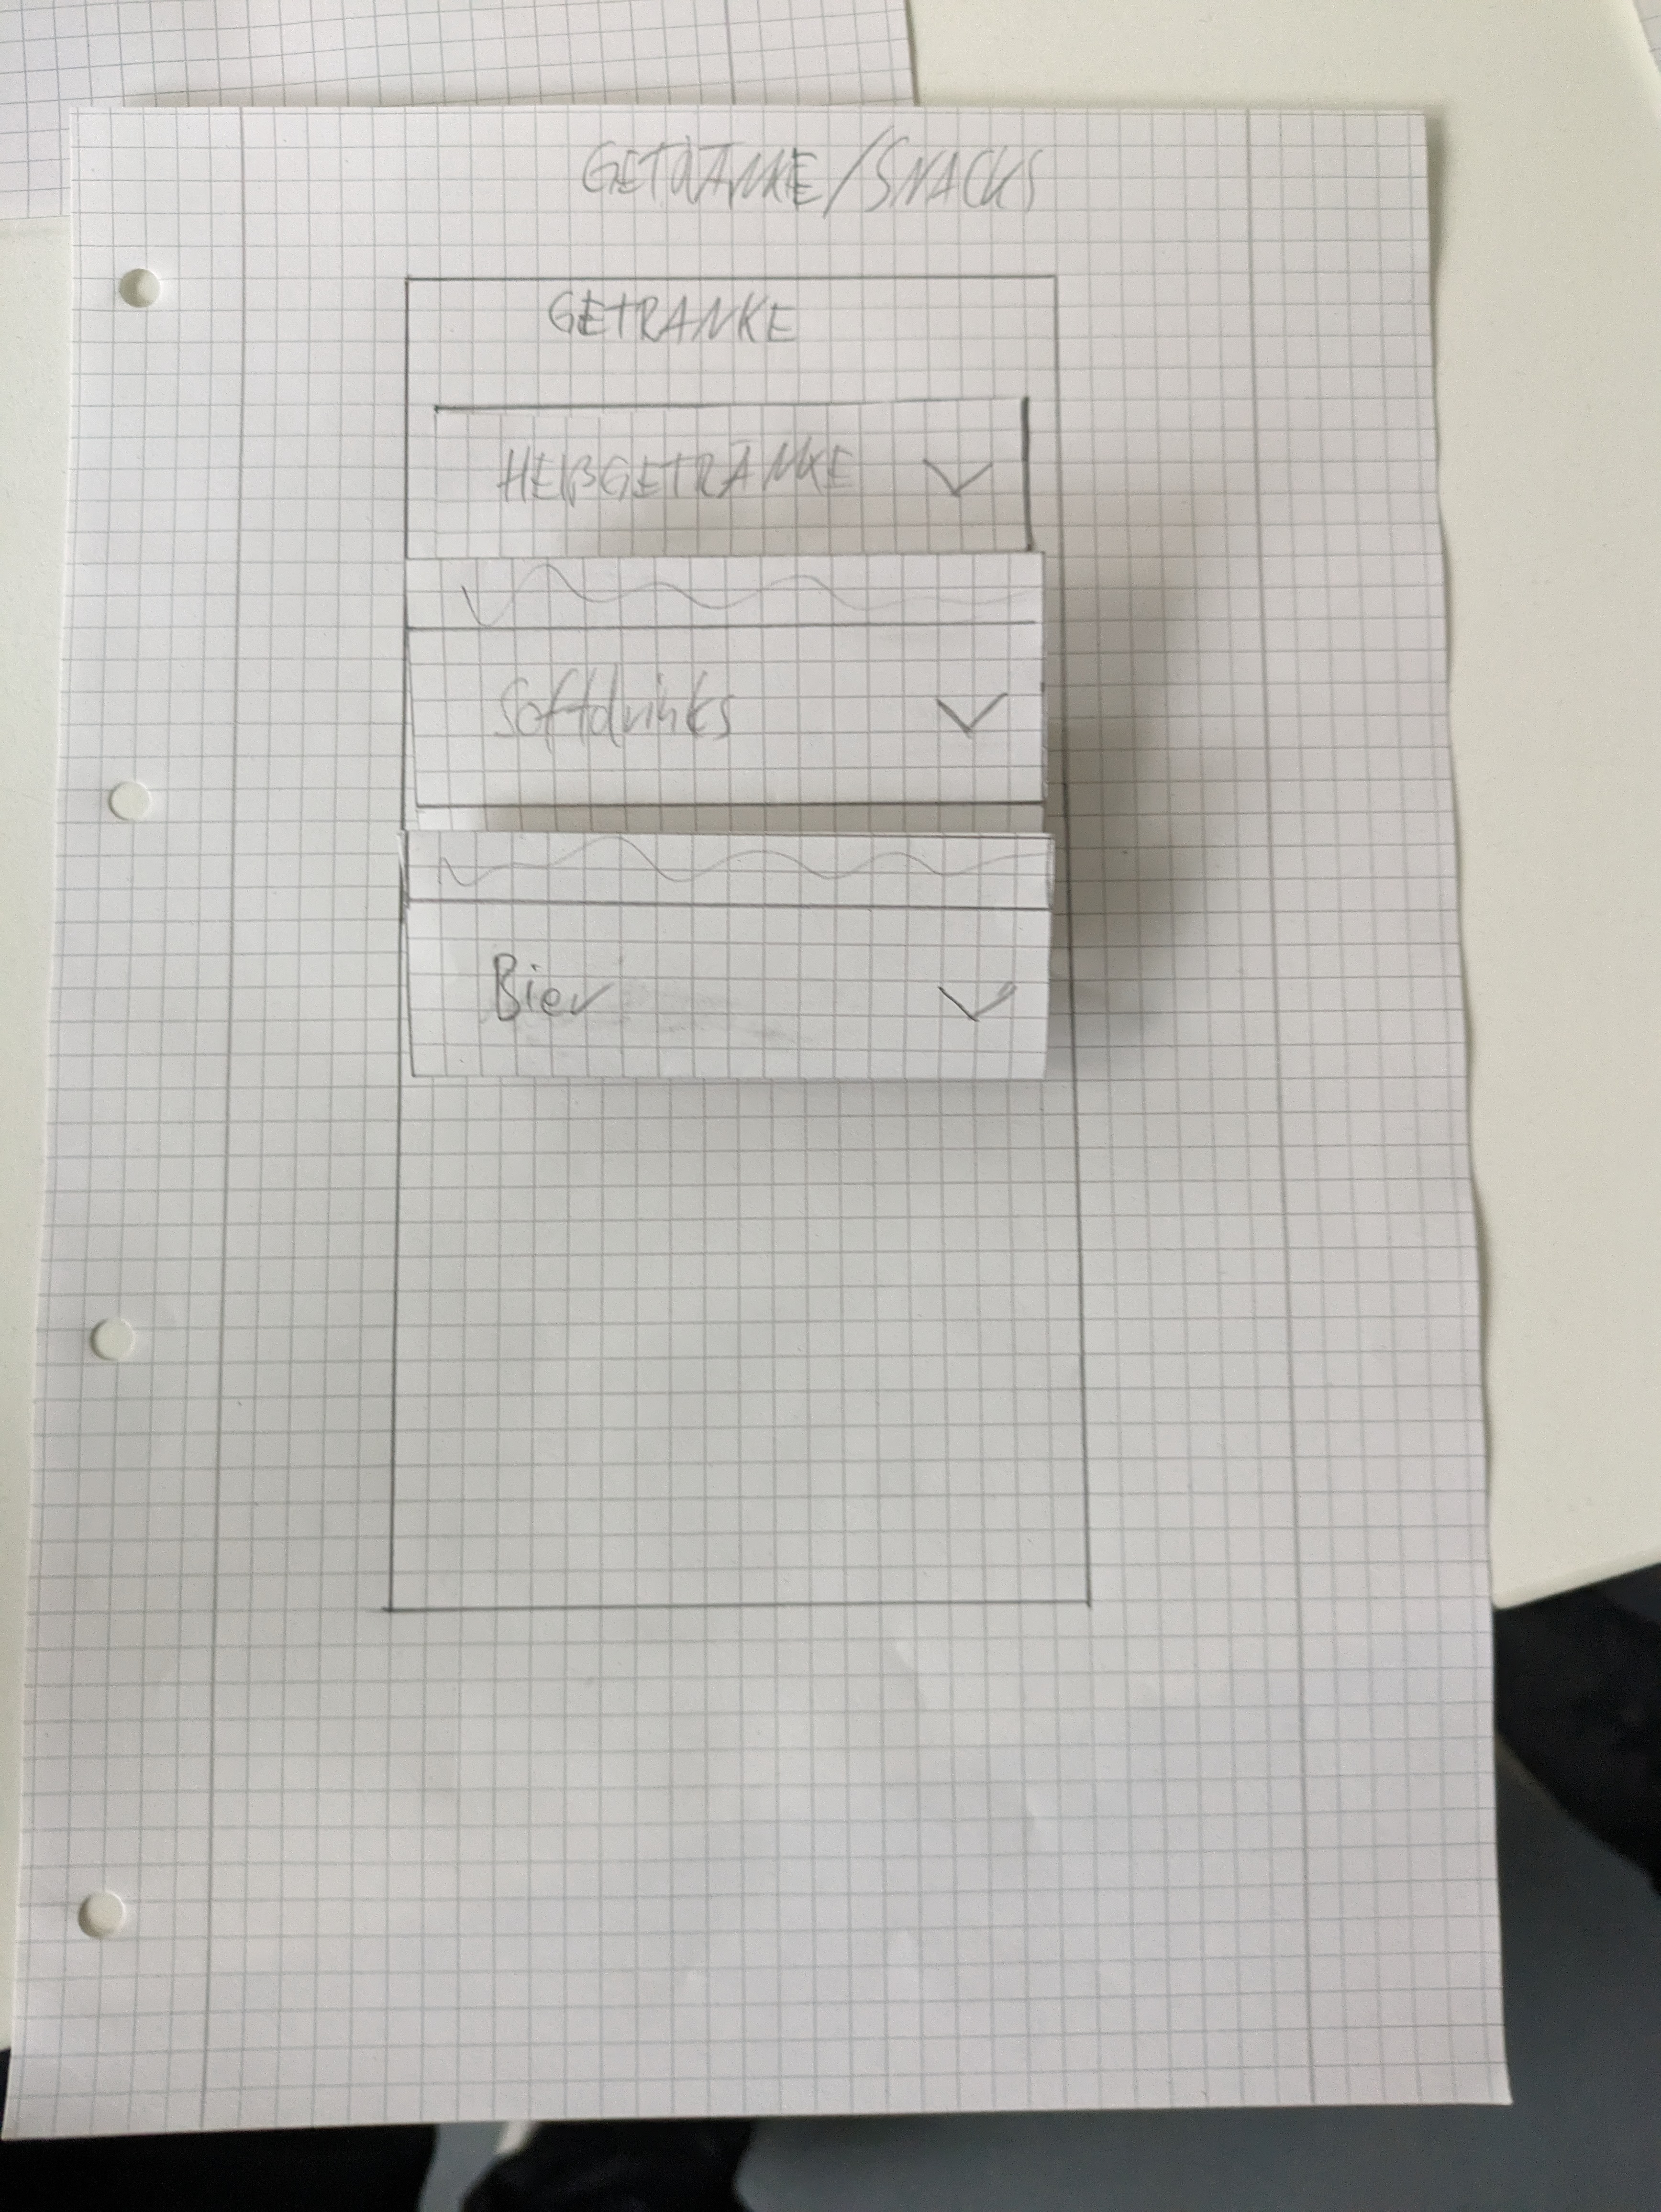 GETRÄNKE/SNACKS
GETRANKE
HEIßGETRANKE
Softdrinks
Bier